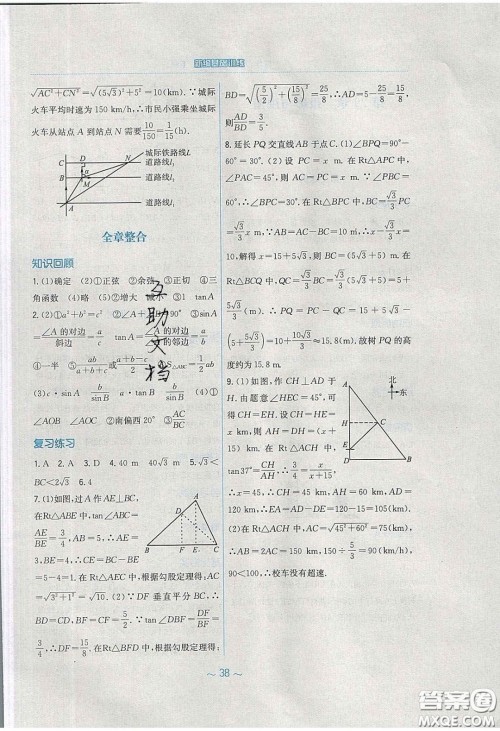 √(AC²+CN²)=√((5√3)²+5²)=10(km). ∵城际
火车平均时速为 150 km/h,∴市民小强乘坐城际
火车从站点 A 到站点 N 需要 10/150=1/15(h).
城际铁路线L
道路线l₁
道路线l₂
道路线l₃
全章整合
知识回顾
1.(1)确定 (2)①正弦 ②余弦 ③正切 ④三
角函数 (4)略 (5)①增大 减小 ③1 tanA
2.(2)①90° ②a²+b²=c² ③sinA
=∠A的对边/斜边 tanA=∠A的对边/∠A的邻边
④一半 ⑤ab/(a+b+c)或(a+b-c)/2 S△ABC=1/2 ab
(3)c·sinA a/sinB b/sinB
∠AOU ∠AOC ②南偏西20° ③AC/BC
复习练习
1.A 2.A 3.D 4.40 m 40√3 m 5.√3
<BC<2√3 6.4
7.(1)如图,过 A 作 AE⊥BC,
在 Rt△ABE 中,∵tan∠ABC=
AE/BE=3/4,AB=5,∴AE=3,
BE=4,∴CE=BC-BE
=5-4=1.在 Rt△AEC 中,根据勾股定理得:AC
=√(3²+1²)=√10. (2)∵DF 垂直平分 BC,∴
BD=CD,BF=CF=5/2. ∵tan∠DBF=DF/BF=
3/4,∴DF=15/8.在 Rt△BFD 中,根据勾股定理得:
BD=√((5/2)²+(15/8)²)=25/8,∴AD=5-25/8=15/8,
则AD/BD=3/5.
8.延长 PQ 交直线 AB 于点 C.(1)∠BPQ=90°-
60°=30°. (2)设 PC=x m.在 Rt△APC 中,
∠PAC=45°,则 AC=PC=x m. ∵∠PBC=
60°,∴∠BPC=30°.在 Rt△BPC 中,BC=√3/3 PC
=√3/3 x m. ∵AB=AC-BC=10,∴x-√3/3 x
=10,解得 x=15+5√3,则 BC=(5√3+5)m.在
Rt△BCQ 中,QC=√3/3 BC=√3/3(5√3+5)=5+
5√3/3(m). ∴PQ=PC-QC=15+5√3-
(5+5√3/3)=10+10√3/3≈15.8(m).故树 PQ 的高
度约为 15.8 m.
9.(1)如图,作 CH⊥AD 于
H,由题意∠HEC=45°,可
得 CH=EH.设 CH=EH=
x m,则 DH=(x+15)m.
在 Rt△ACH 中,
tan37°=CH/AH,∴3/4=x/(x+15),
∴x=45,∴CH=45 m,AH=60 m,AD=
120(m). ∴DE=AD-AE=120-15=105(m).
(2)在 Rt△ACH 中,AC=√(45²+60²)=75(m),∴
AB=2AC=150(m),150÷5/3=90(km/h).
90<100,∴校车没有超速.
A
B
C
D
F
E
A
H
C
E
D
B
北
东
互助文档
~ 38 ~
答案圈
MXQE.COM